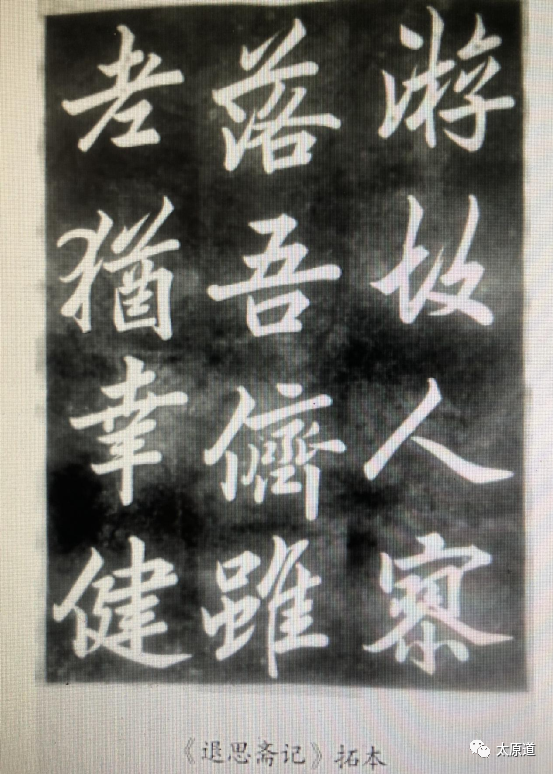 游故人寥
落吾儕雖
老猶幸健
《退思斋记》拓本
太原道